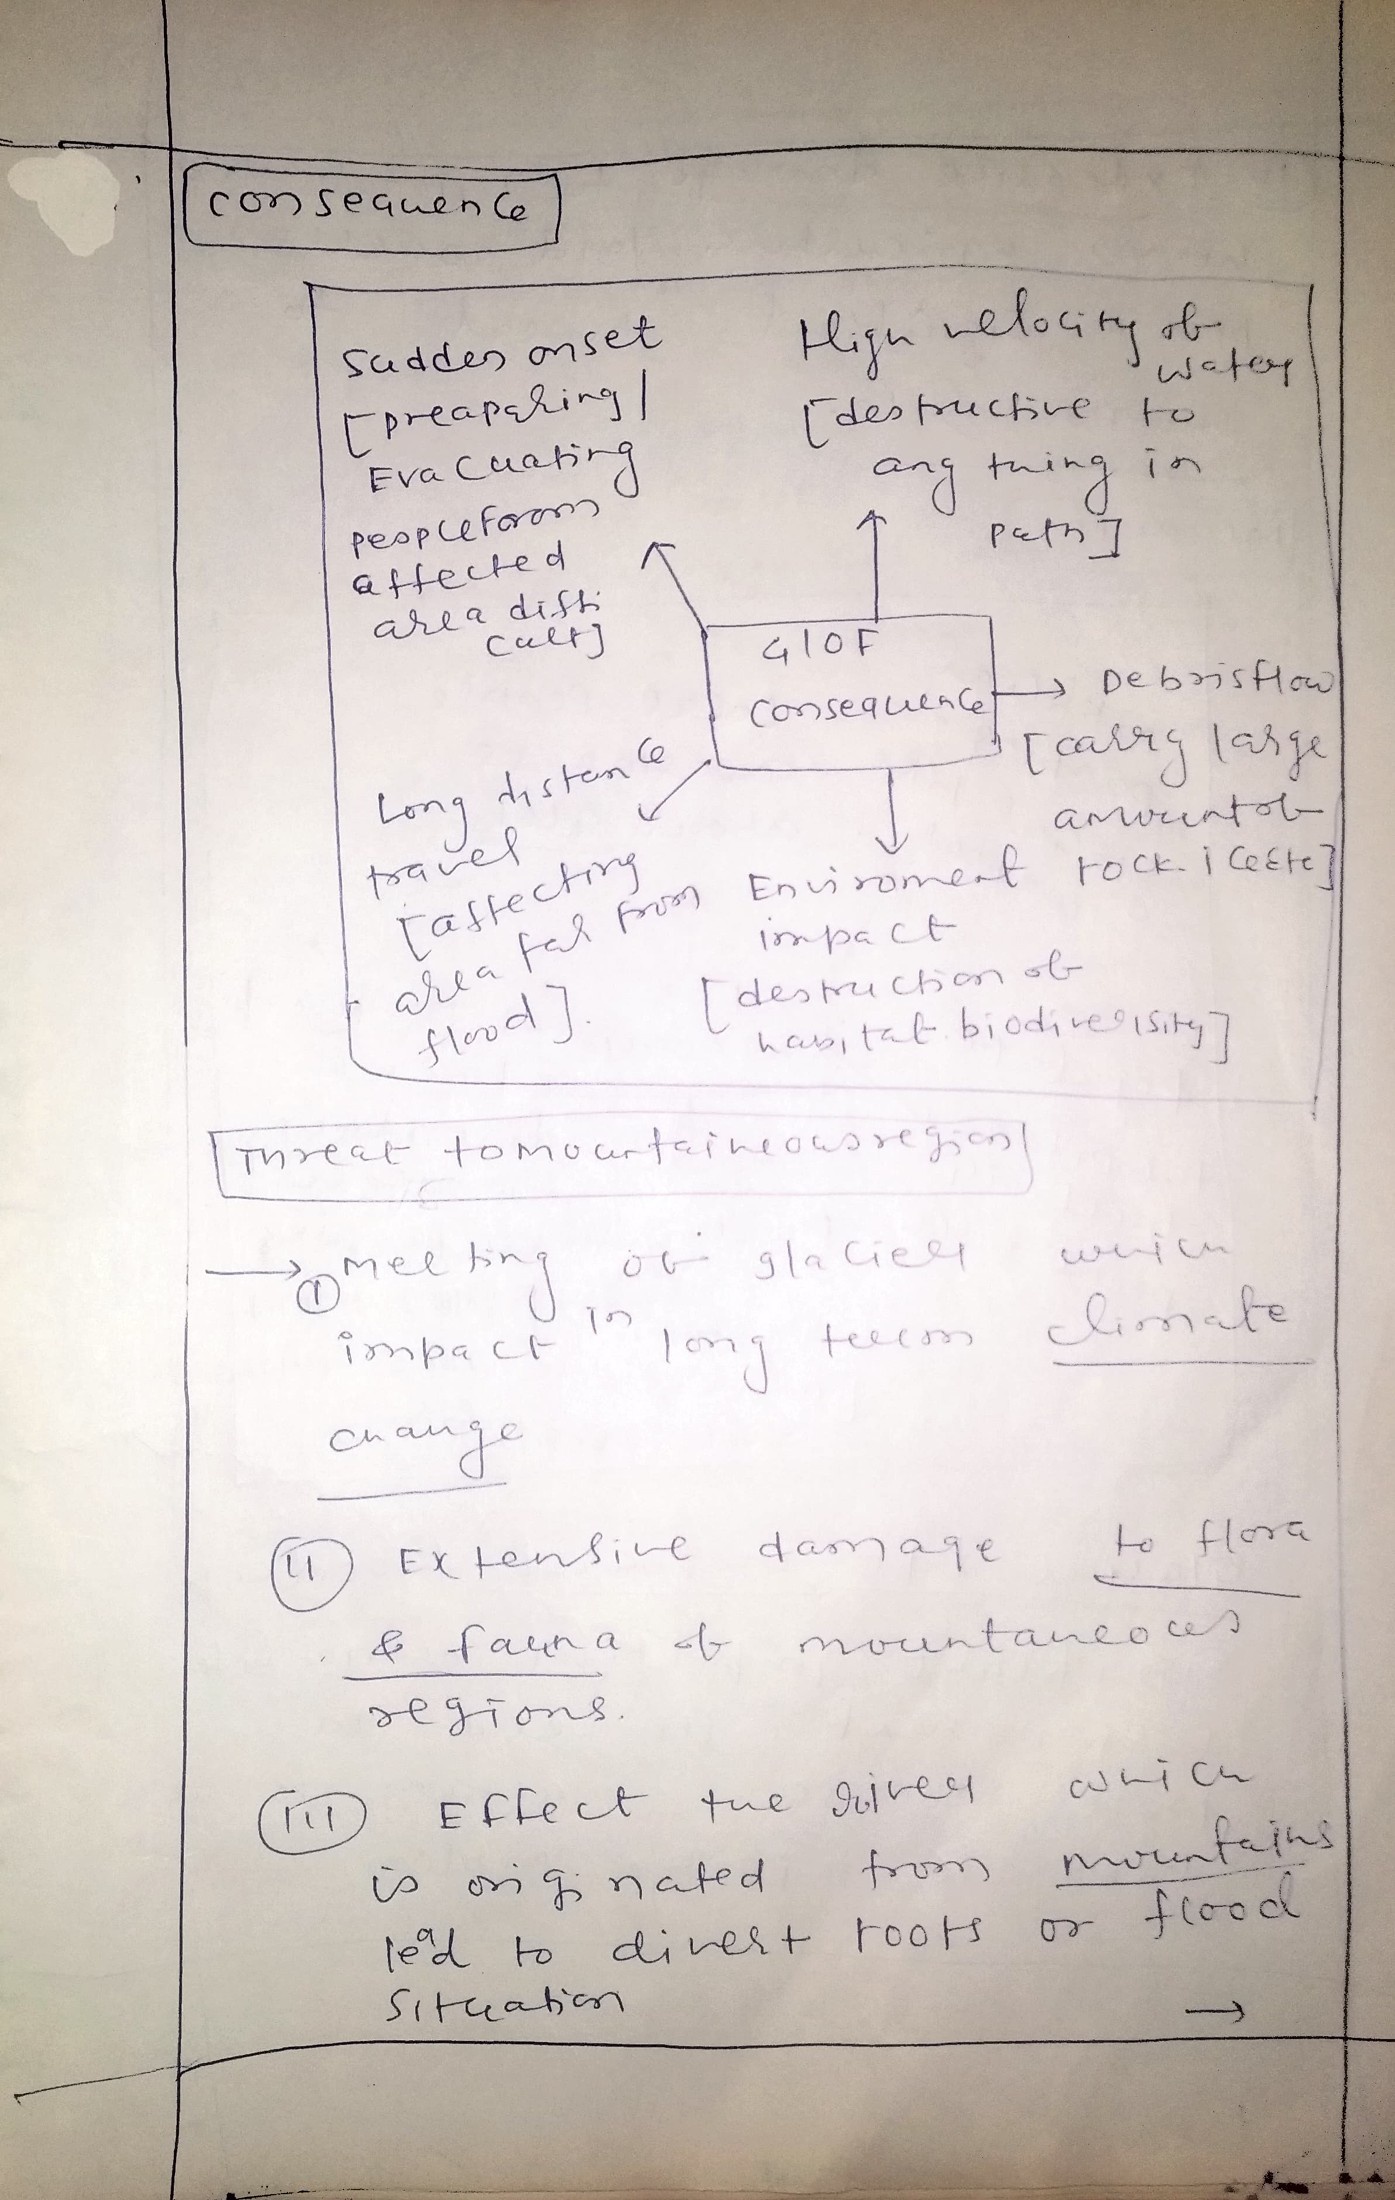 consequence
Sudden onset
[preaparing/
Evacuating
people from
affected
area diffi
cult]
High velocity of
water
[destructive to
any thing in
path]
GLOF
consequence
Debris flow
[carry large
amount of
rock. ice Etc]
Long distance
travel
[affecting
area far from
flood].
Enviroment
impact
[destruction of
habitat biodiversity]
Threat to mountaineous region
→ (I) Melting of glacier which
impact in long term climate
change
(II) Extensive damage to flora
& fauna of mountaneous
regions.
(III) Effect the river which
is originated from mountains
lead to divert roots or flood
situation →